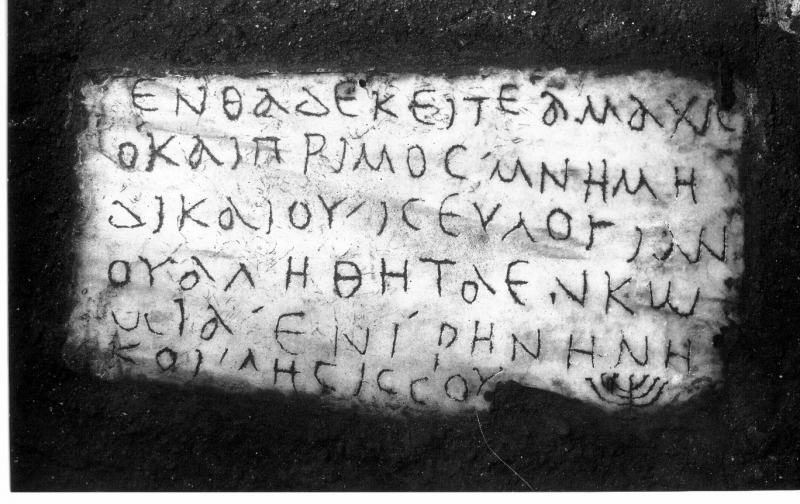 ΕΝΘΑΔΕΚΕΙΤΕΑΜΑΧΙC
ΟΚΑΙΠΡΙΜΟC ΜΝΗΜΗ
ΔΙΚΑΙΟΥ ΙCΕΥΛΟΓΙΑΝ
ΟΥΑΛΗΘΗΤΑΕΝΚΩ
ΜΙΑ ΕΝΙΡΗΝΗΝΗ
ΚΟΙΜΗCΙCCΟΥ